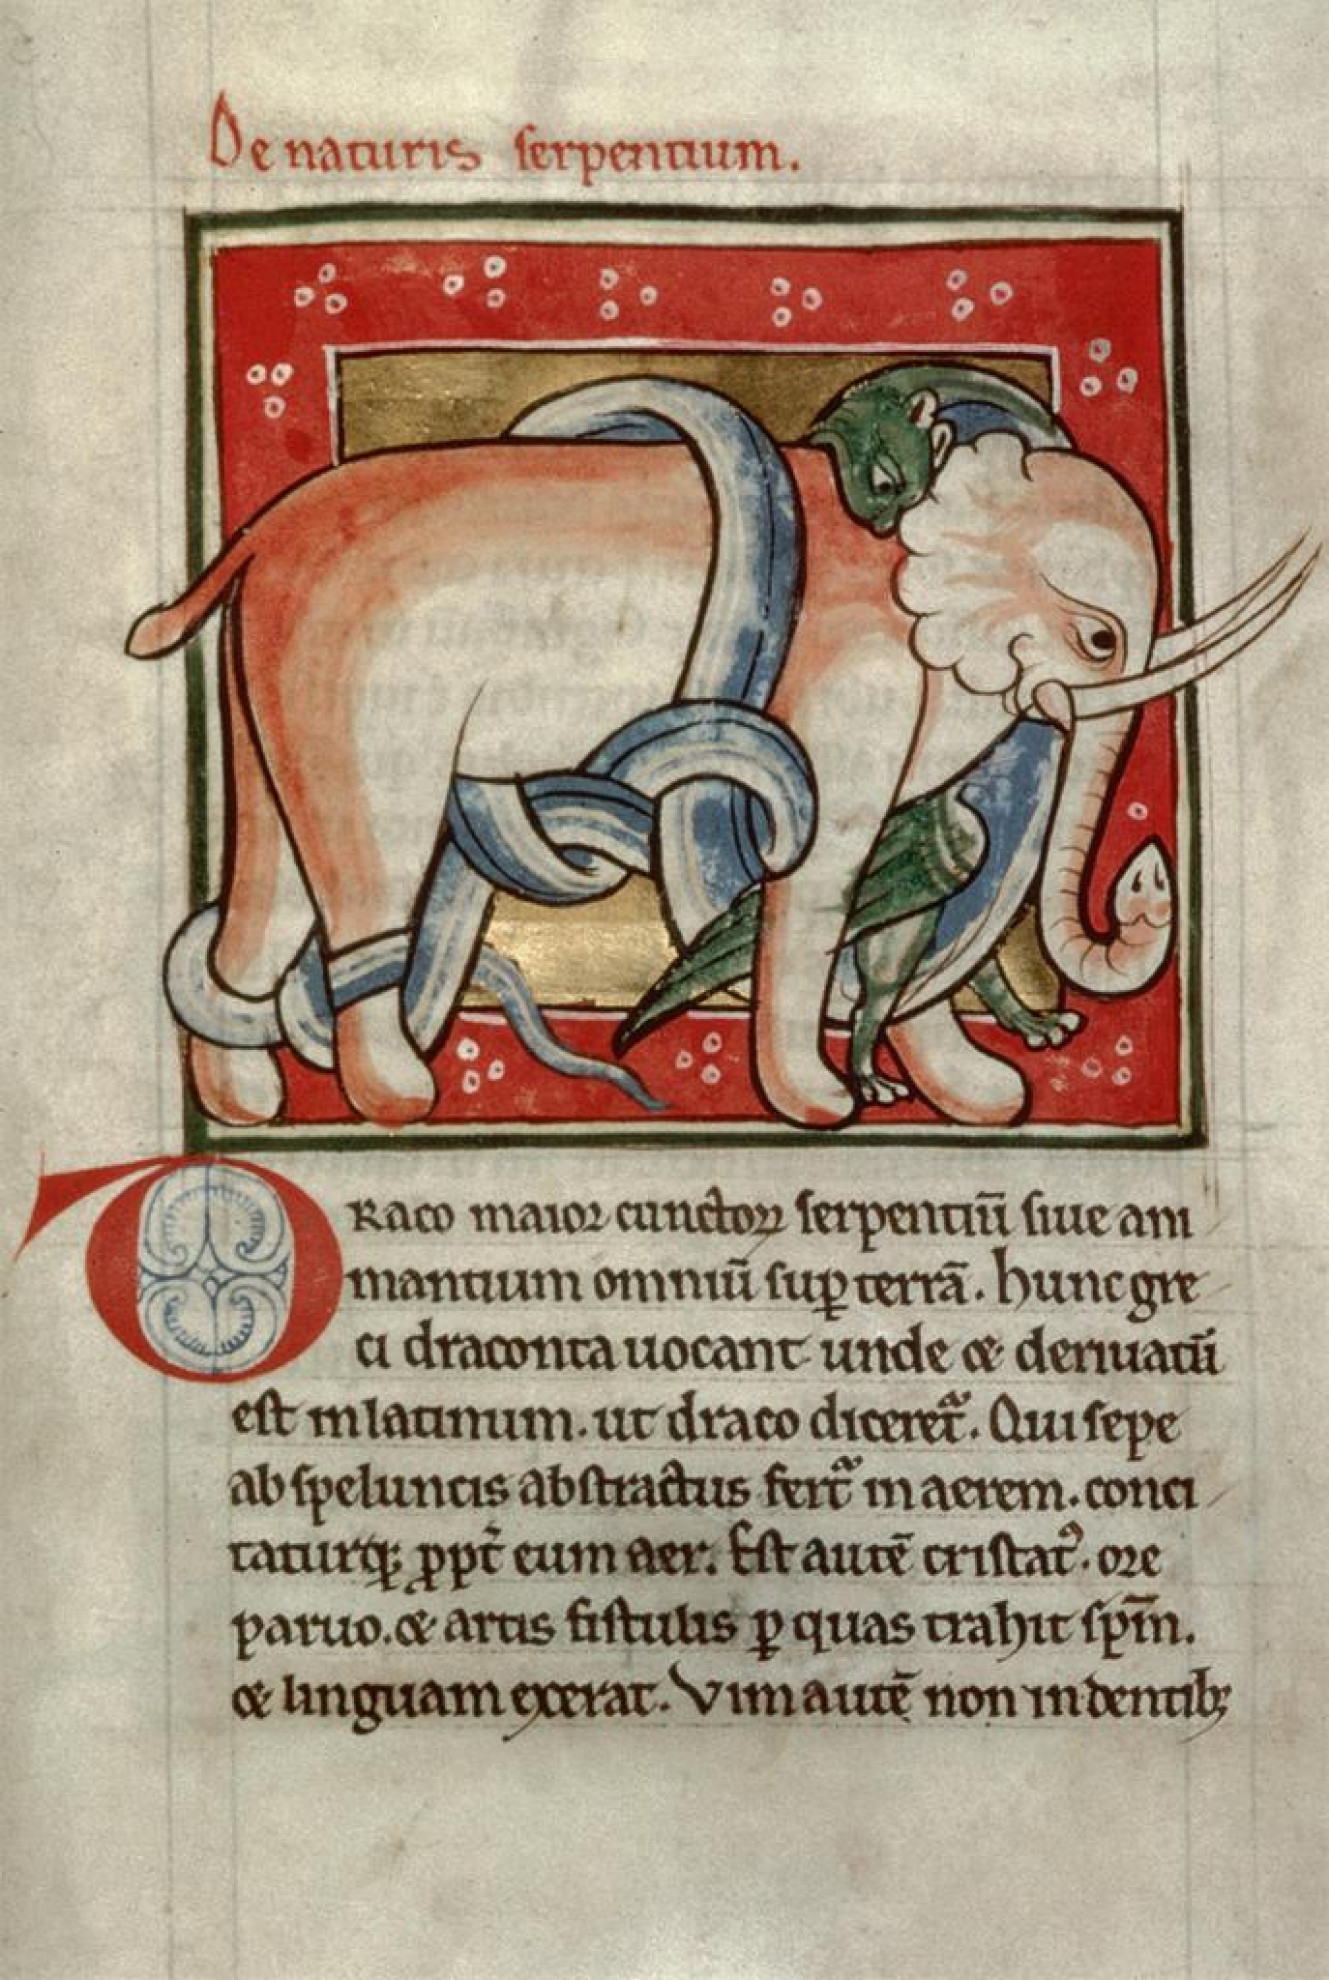 De naturis serpentium.
Draco maior cunctoꝝ serpentiū siue ani
mantium omniū suꝑ terrā. hunc gre
ci draconta uocant unde & deriuatū
est in latinum. ut draco diceret᷑. Qui sepe
ab speluncis abstractus fert᷑ in aerem. conci
taturqꝫ ꝓpt̄ eum aer. Est autē cristatꝰ. ore
paruo. & artis fistulis ꝑ quas trahit sp̄m.
& linguam exerat. Vim autē non in dentibꝫ